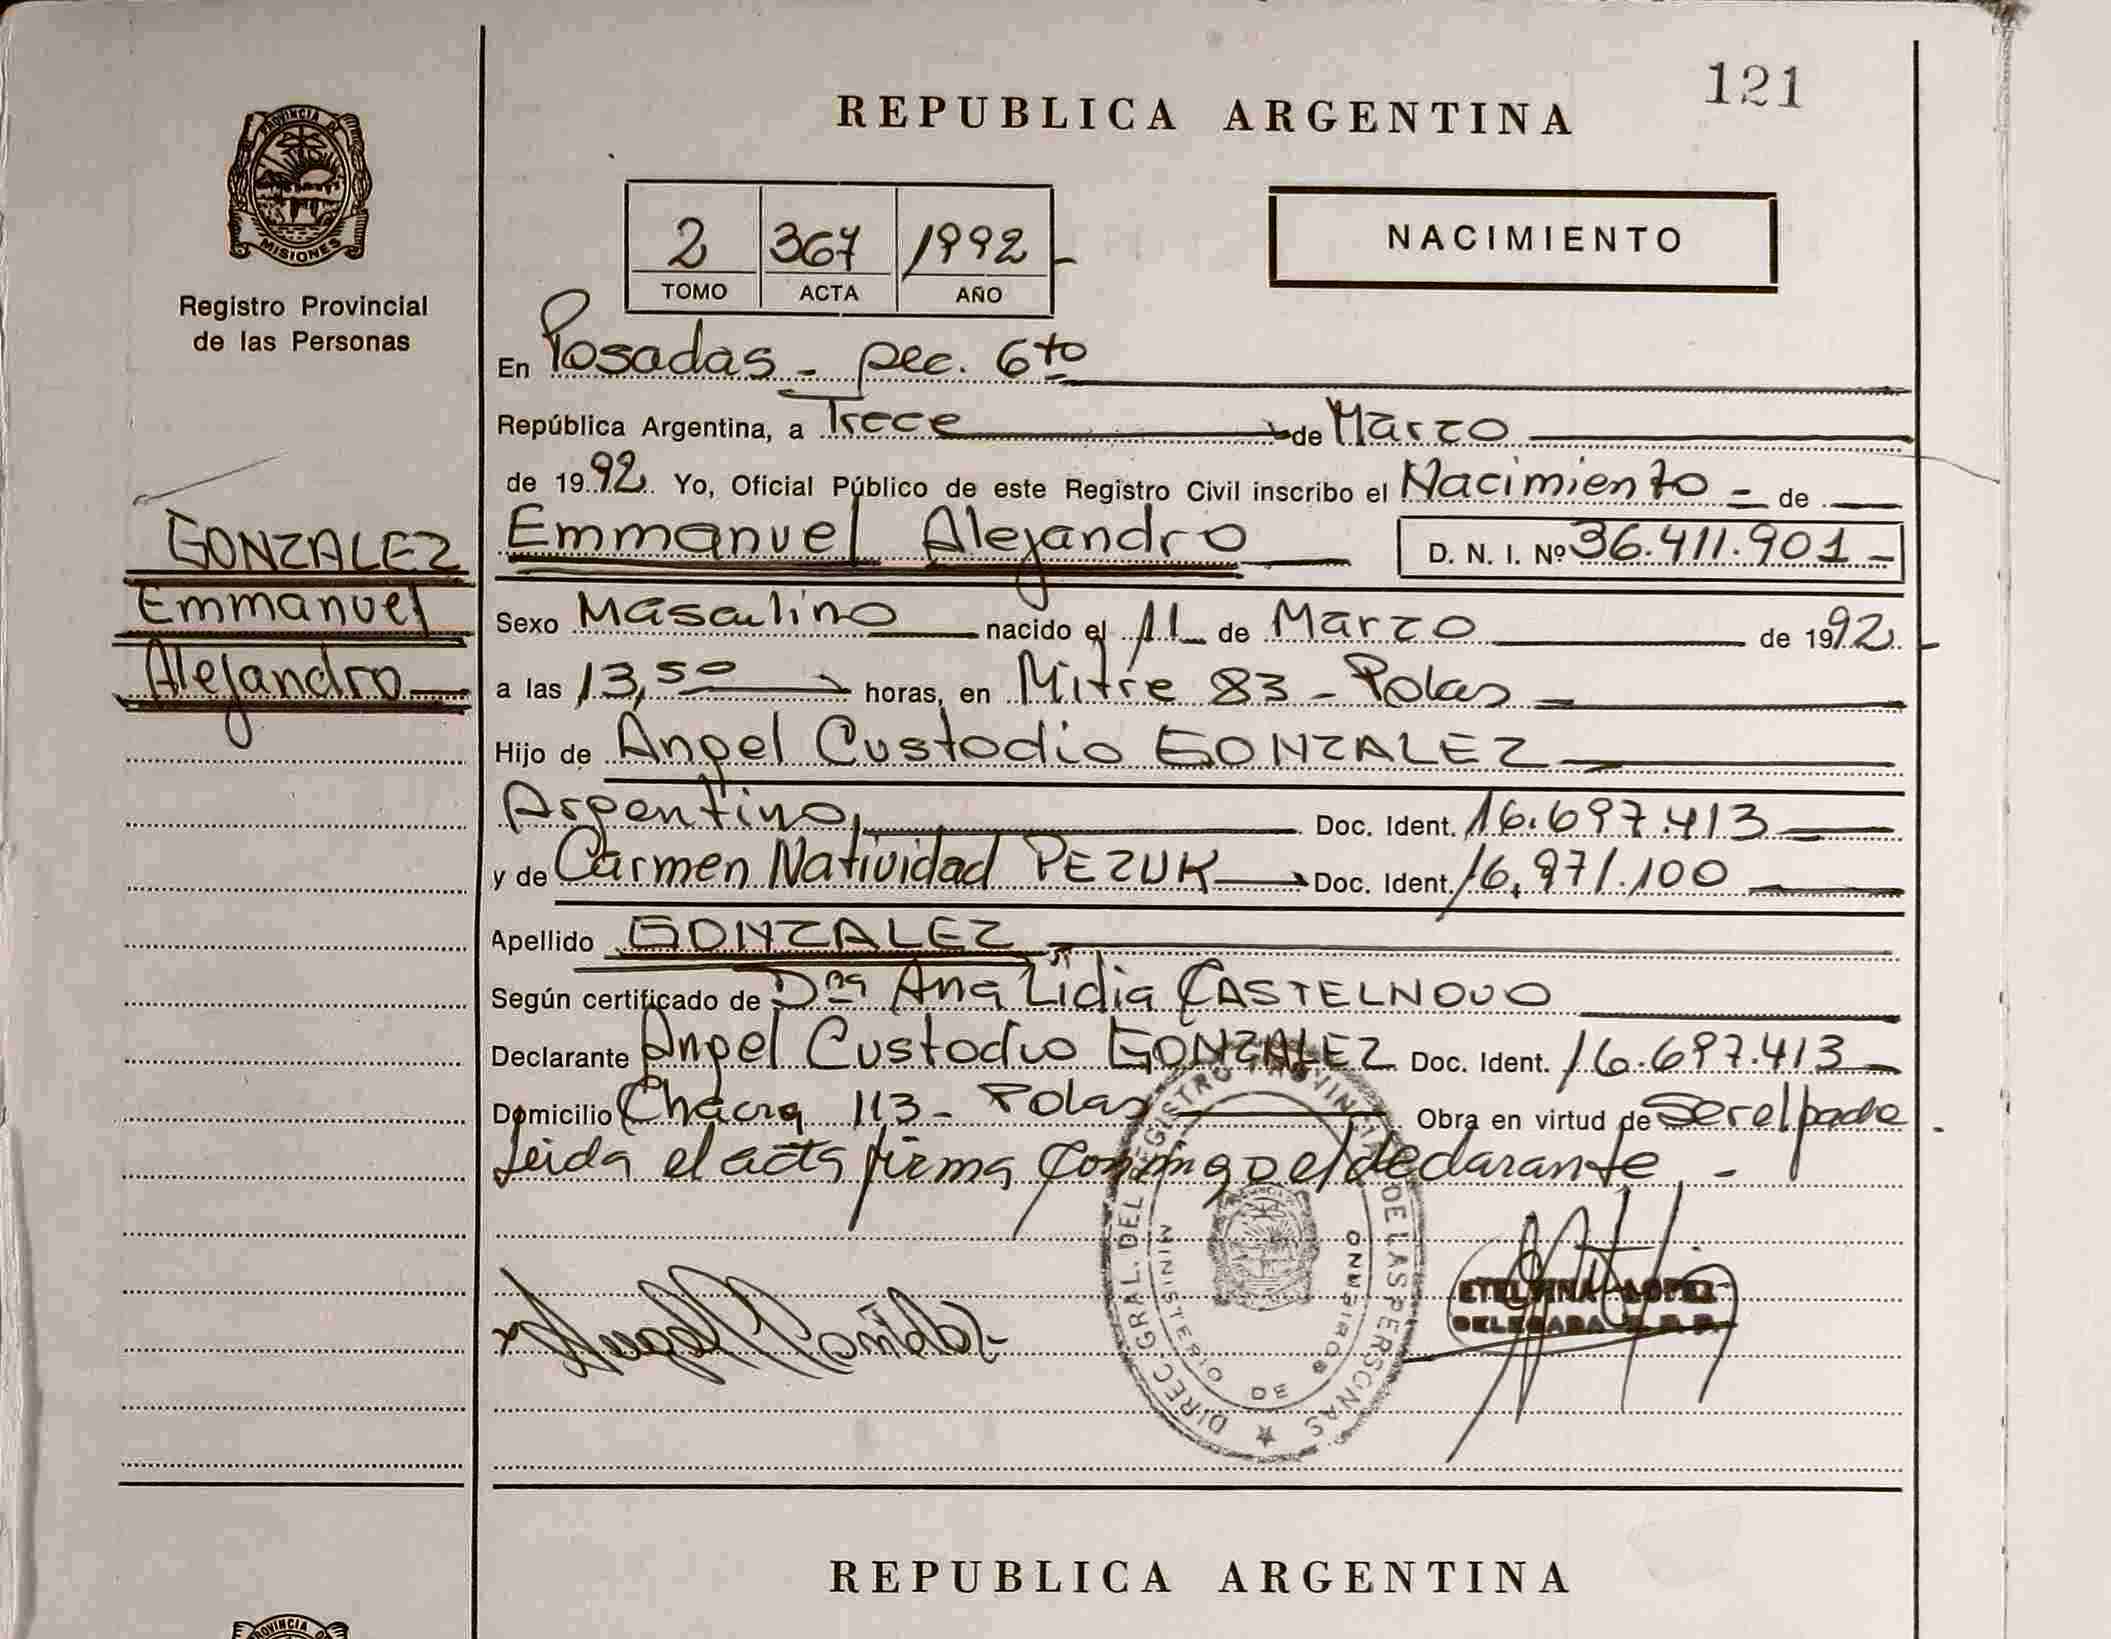 121
REPUBLICA ARGENTINA
PROVINCIA DE
MISIONES
Registro Provincial
de las Personas
NACIMIENTO
2 367 1992
TOMO ACTA AÑO
En Posadas - Sec. 6to
República Argentina, a Trece de Marzo
de 1992 Yo, Oficial Público de este Registro Civil inscribo el Nacimiento = de
GONZALEZ
Emmanuel
Alejandro
Emmanuel Alejandro D. N. I. Nº 36.411.901
Sexo Masculino nacido el 11 de Marzo de 1992
a las 13,50 horas, en Mitre 83 - Pdas
Hijo de Angel Custodio GONZALEZ
Argentino, Doc. Ident. 16.697.413
y de Carmen Natividad PEZUK Doc. Ident. 16,971.100
Apellido GONZALEZ
Según certificado de Dra Ana Lidia CASTELNOVO
Declarante Angel Custodio GONZALEZ Doc. Ident. 16.697.413
Domicilio Chacra 113 - Pdas Obra en virtud de Ser el padre
Leida el acta firma conmigo el declarante -
DIREC. GRAL. DEL REGISTRO PROVINCIAL DE LAS PERSONAS
MINISTERIO DE GOBIERNO
ETELVINA LOPEZ
DELEGADA R.P.P.
REPUBLICA ARGENTINA
PROVINCIA DE